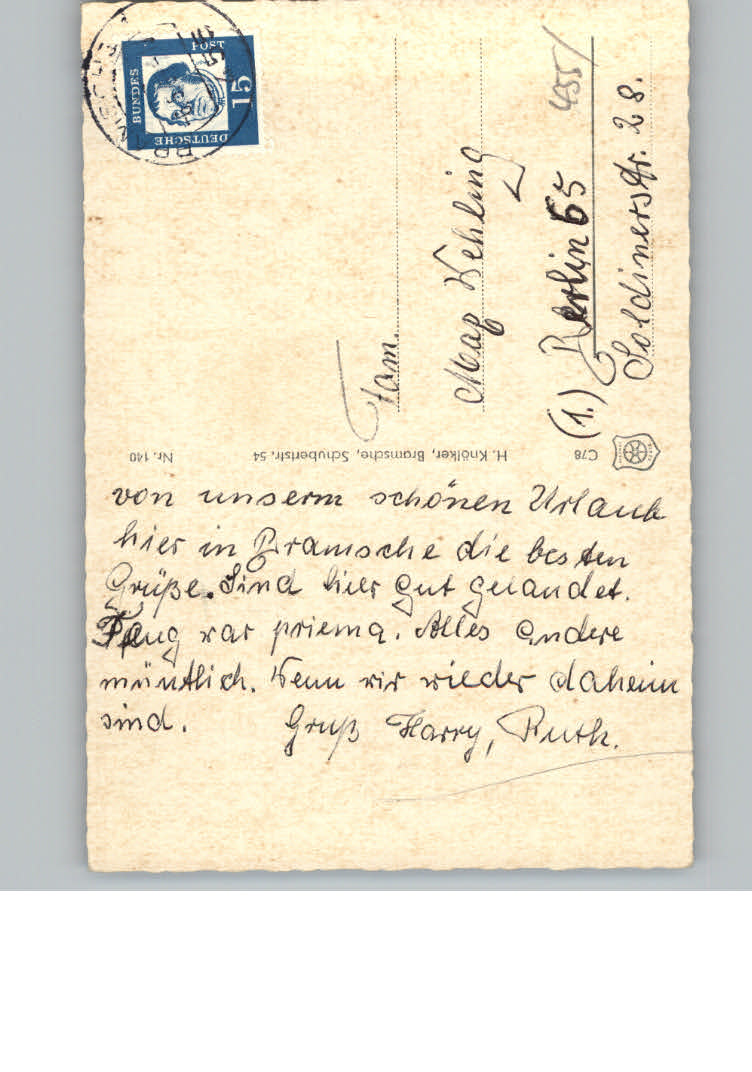 von unserm schönen Urlaub
hier in Bramsche die besten
Grüße. Sind hier gut gelandet.
Flug war priema. Alles andere
müntlich. Wenn wir wieder daheim
sind. Gruß Harry, Ruth.
Fam.
Max Wehling
(1.) Berlin 65
Soldinerstr. 28.
C78 H. Knölker, Bramsche, Schubertstr. 54 Nr. 140
DEUTSCHE
BUNDES
POST
15